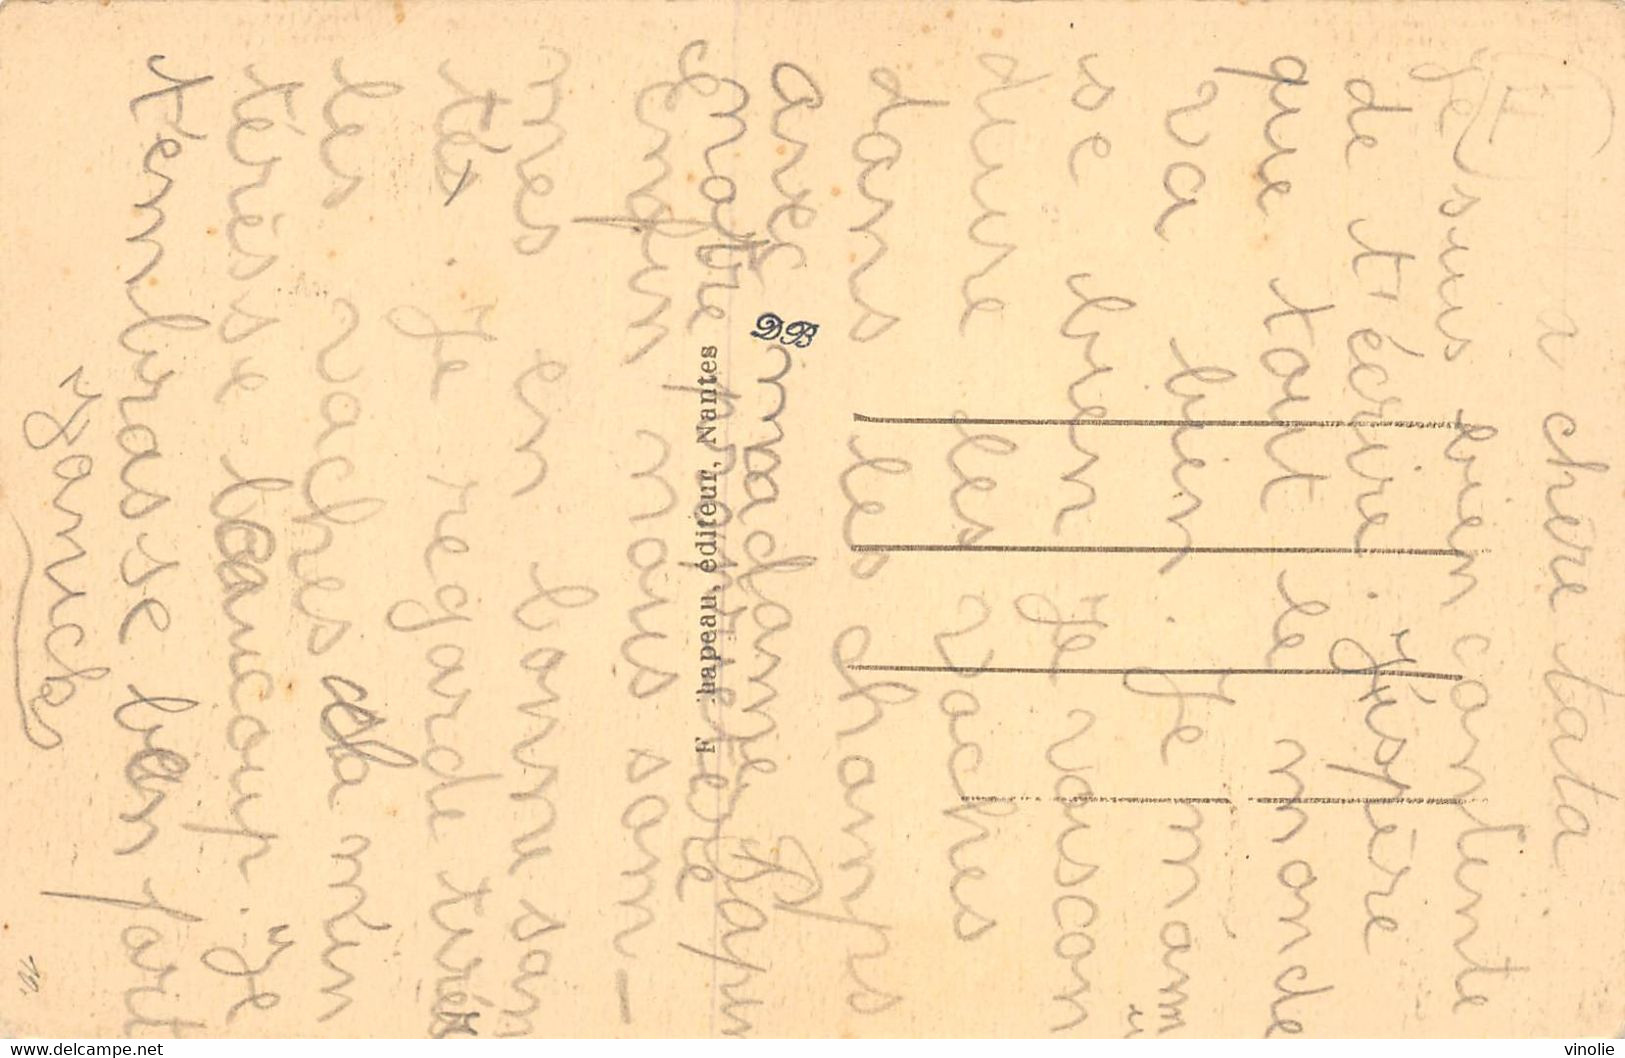 chère tata
Je suis bien contente
de t'écrire. J'éspère
que tout le monde
va bien. Je m'am
se bien Je vais con
duire les vaches
dans les champs
avec madame Papin
notre propriétère
enfin nous som-
mes en bonne san
té. Je regarde tiré
les vaches cha m'in
térésse beaucoup. Je
t'embrasse bien fort
yanick
DB
F hapeau, éditeur, Nantes
www.delcampe.net
vinolie